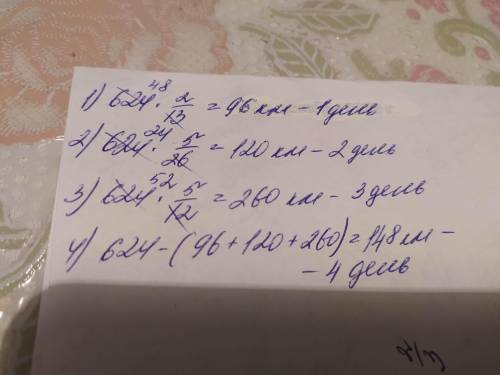 1) 624⁴⁸ · 2/13 = 96 км - 1 день
2) 624²⁴ · 5/26 = 120 км - 2 день
3) 624⁵² · 5/12 = 260 км - 3 день
4) 624 - (96 + 120 + 260) = 148 км -
- 4 день